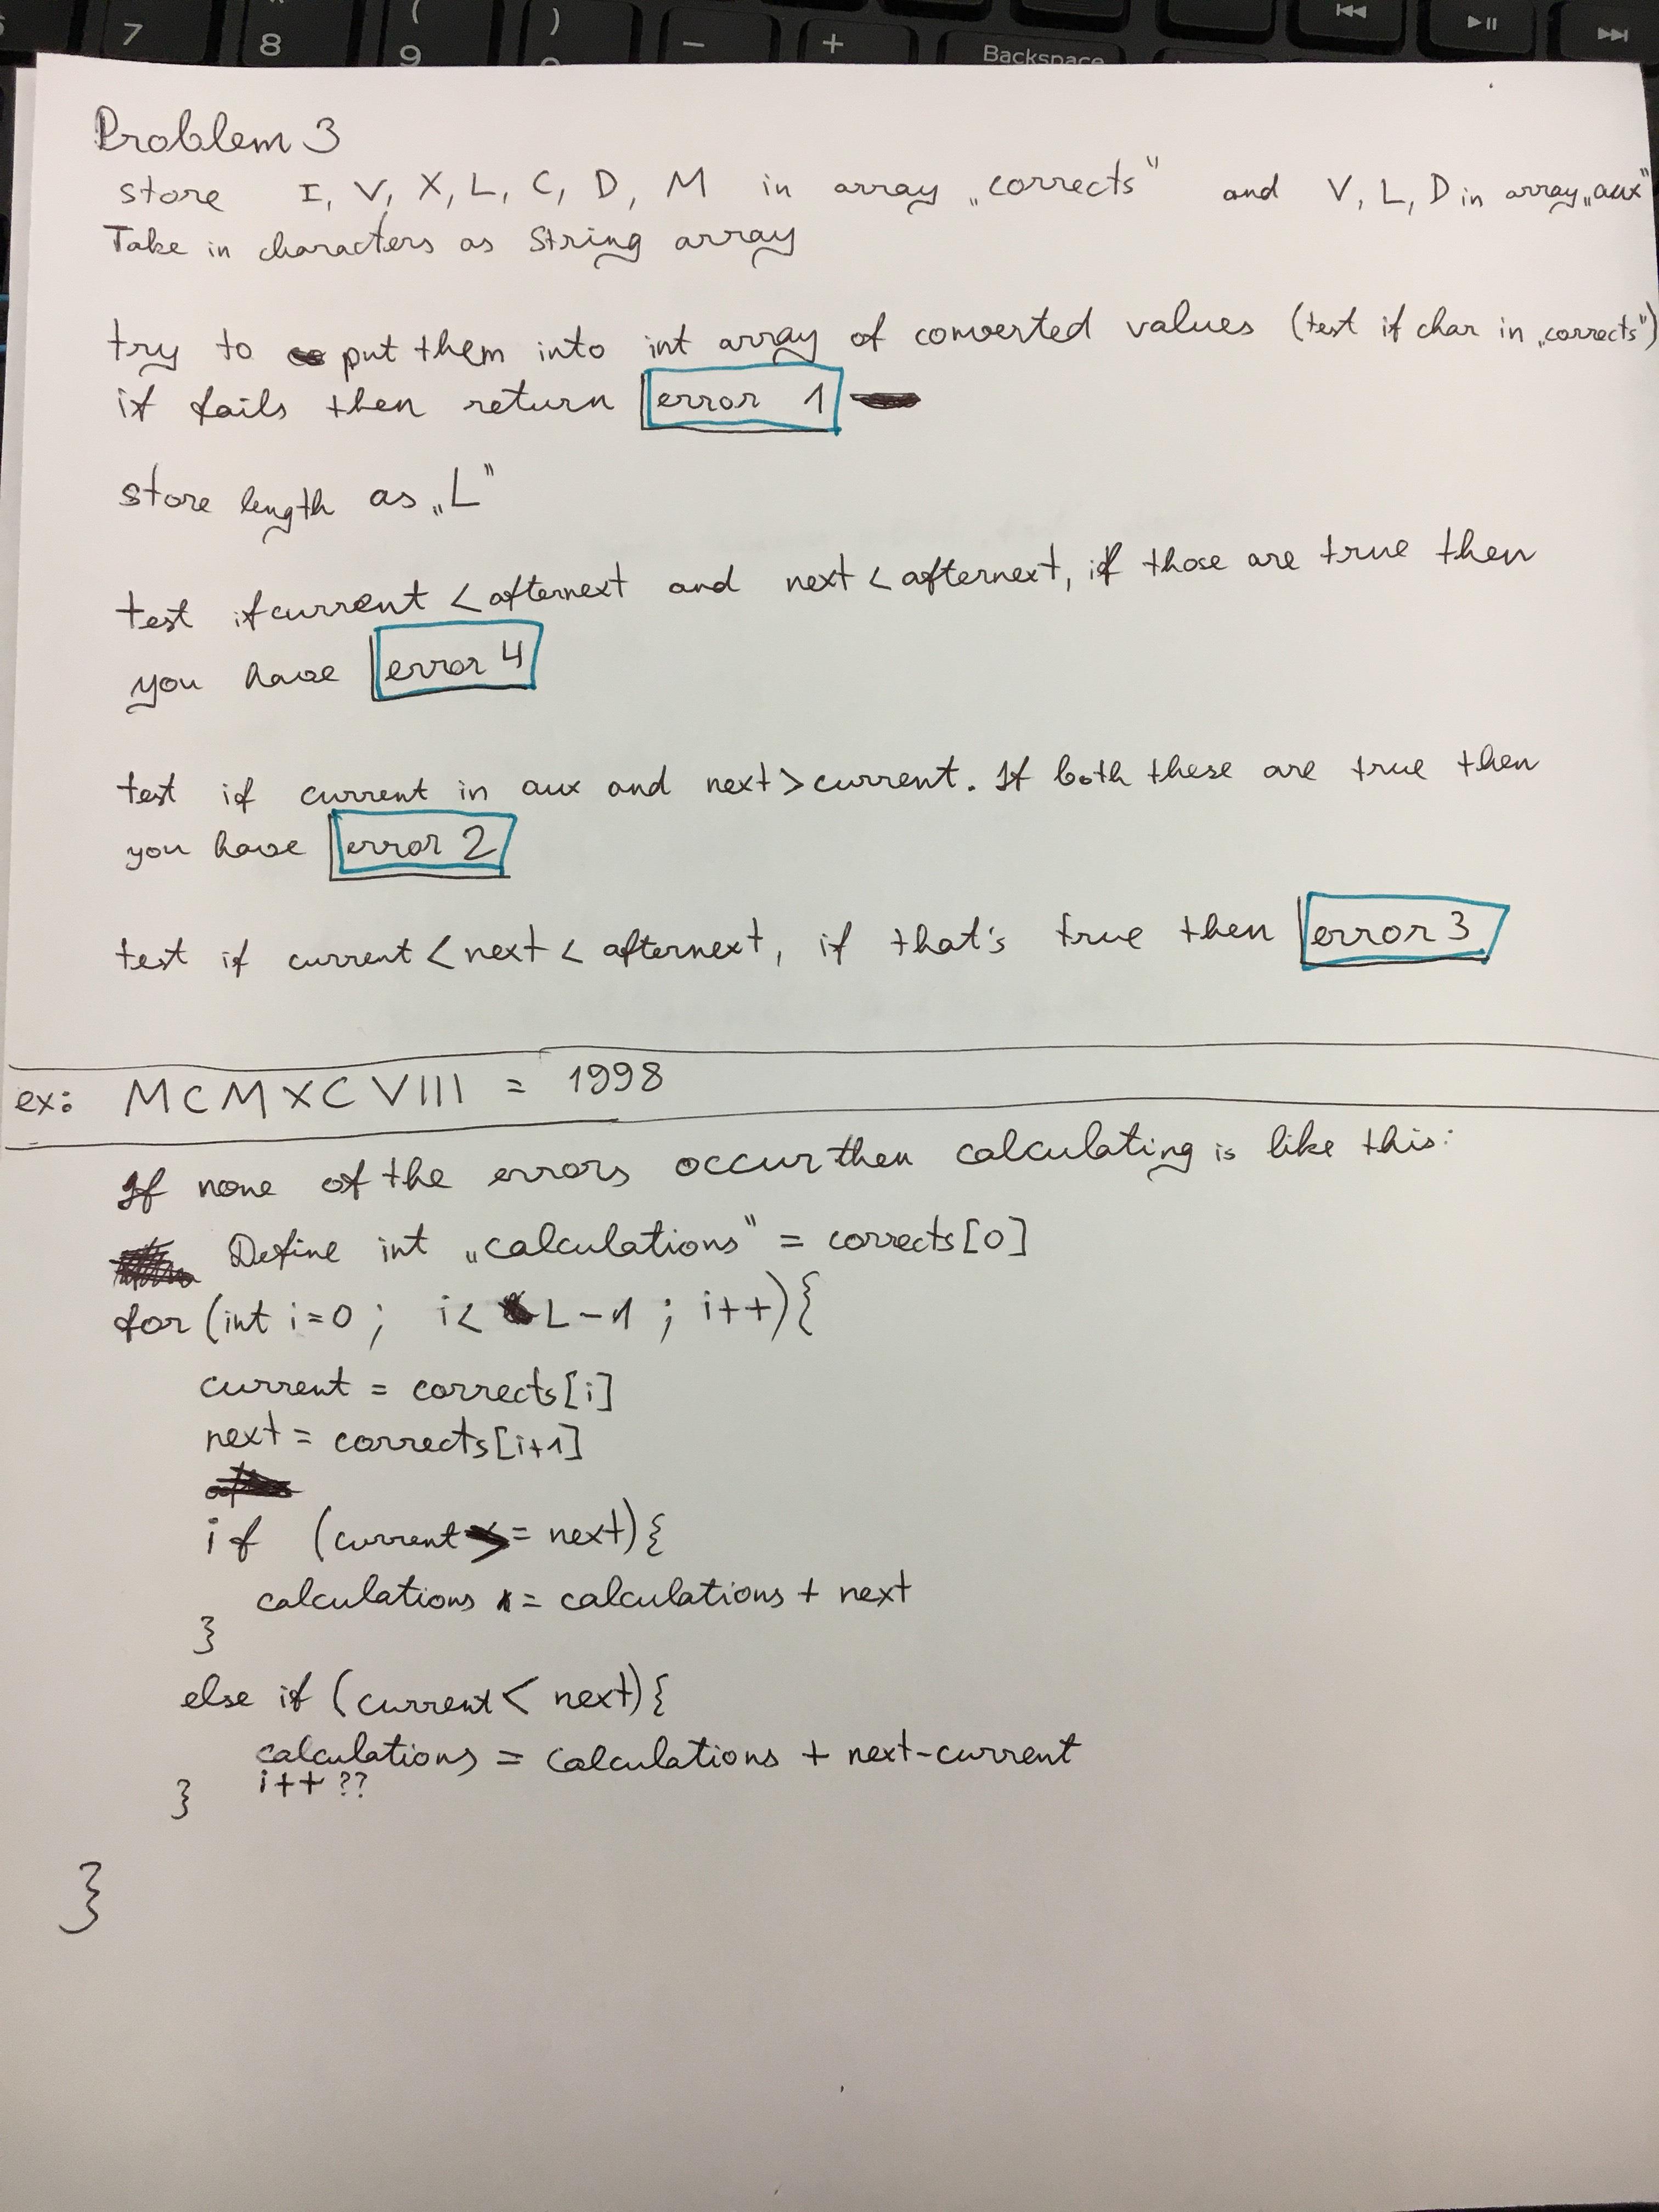 Problem 3
store I, V, X, L, C, D, M in array „corrects“ and V, L, D in array „aux“
Take in characters as String array
try to put them into int array of converted values (test if char in „corrects“)
if fails then return error 1
store length as „L“
test if current < afternext and next < afternext, if those are true then
you have error 4
test if current in aux and next > current. If both these are true then
you have error 2
test if current < next < afternext, if that's true then error 3
ex: MCMXCVIII = 1998
If none of the errors occur then calculating is like this:
Define int „calculations“ = corrects[0]
for (int i=0; i< L-1; i++){
current = corrects[i]
next = corrects[i+1]
if (current >= next){
calculations = calculations + next
}
else if (current < next){
calculations = calculations + next-current
i++??
}
}
7
8
9 (
)
-
+
Backspace